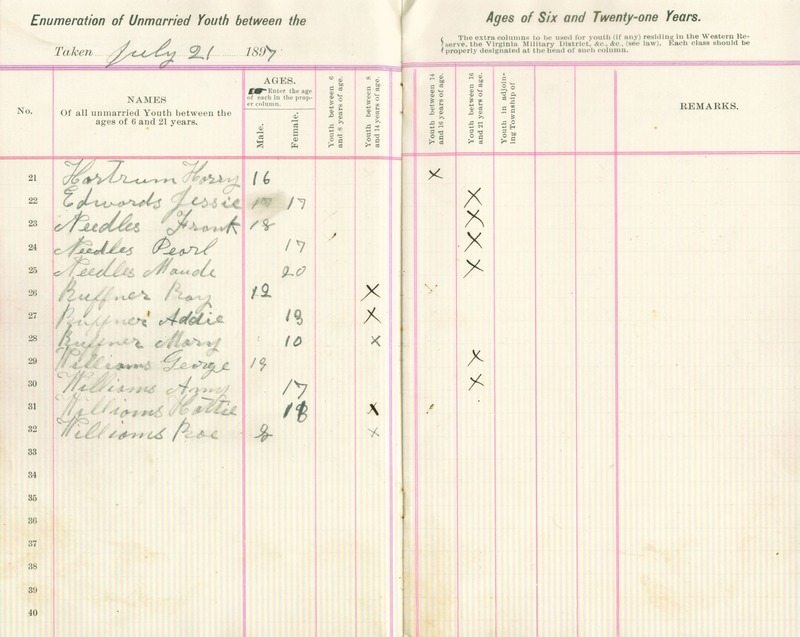 Enumeration of Unmarried Youth between the Ages of Six and Twenty-one Years.
Taken July 21 1897
The extra columns to be used for youth (if any) residing in the Western Re-
serve, the Virginia Military District, &c., &c., (see law). Each class should be
properly designated at the head of such column.
No.
NAMES
Of all unmarried Youth between the
ages of 6 and 21 years.
AGES.
Enter the age
of each in the prop-
er column.
Male.
Female.
Youth between 6
and 8 years of age.
Youth between 8
and 14 years of age.
Youth between 14
and 16 years of age.
Youth between 16
and 21 years of age.
Youth in adjoin-
ing Township of
REMARKS.
21 Hartrum Harry 16 X
22 Edwards Jessie 17 X
23 Needles Frank 18 X
24 Needles Pearl 17 X
25 Needles Maude 20 X
26 Ruffner Ray 12 X
27 Ruffner Addie 13 X
28 Ruffner Mary 10 X
29 Williams George 19 X
30 Williams 17 X
31 Williams Hattie X
32 Williams Roe 8 X
33
34
35
36
37
38
39
40